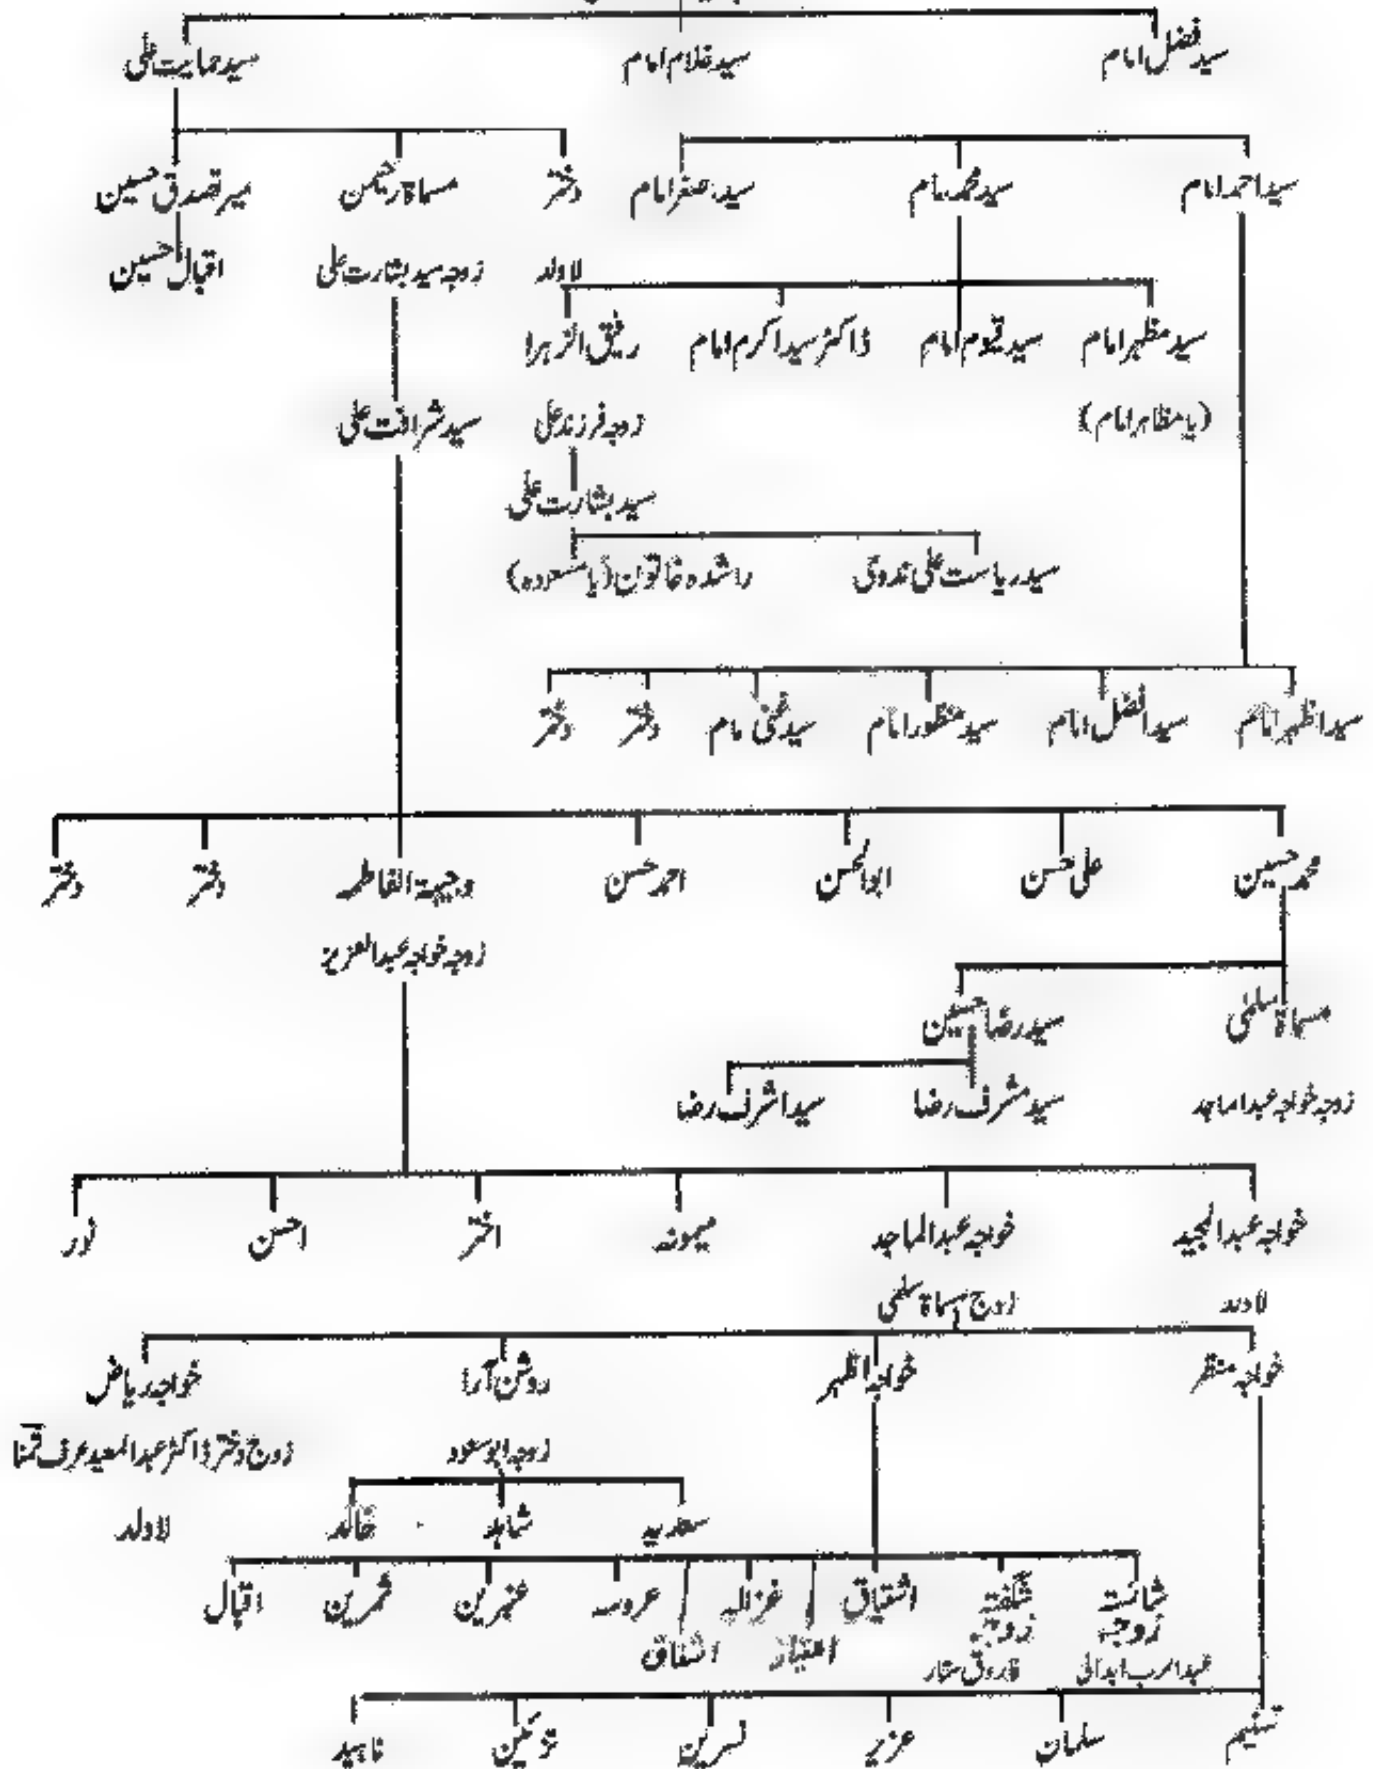 سید فضل امام سید غلام امام سید حمایت علی
سید احمد امام سید محمد امام سید صغر امام دختر مسماۃ رحیمن میر تصدق حسین
لاولد زوجہ سید بشارت علی اقبال حسین
سید مظہر امام سید قیوم امام ڈاکٹر سید اکرم امام رفیق الزہرا
(یا مظاہر امام) زوجہ فرزند علی سید شرافت علی
سید بشارت علی
سید ریاست علی ندوی راشدہ خاتون (یا مسعودہ)
سید اظہر امام سید افضل امام سید منظور امام سید غنی امام دختر دختر
محمد حسین علی حسن ابوالحسن احمد حسن وجیہۃ الفاطمہ دختر دختر
زوجہ خواجہ عبدالعزیز
مسماۃ سلمٰی سید رضا حسین
زوجہ خواجہ عبدالماجد سید مشرف رضا سید اشرف رضا
خواجہ عبدالمجید خواجہ عبدالماجد میمونہ اختر احسن نور
لاولد زوج مسماۃ سلمٰی
خواجہ منظر خواجہ اظہر روشن آرا خواجہ ریاض
زوجہ ابوسعود زوج دختر ڈاکٹر عبدالمعید عرف تمنا
سعدیہ شاہد خالد لاولد
شائستہ شگفتہ اشتیاق غزالہ عروسہ عنبرین ثمرین اقبال
زوجہ زوجہ امتیاز اشفاق
عبدالرب ابدالی فاروق ستار
تسنیم سلمان عزیر نسرین تزئین ناہید